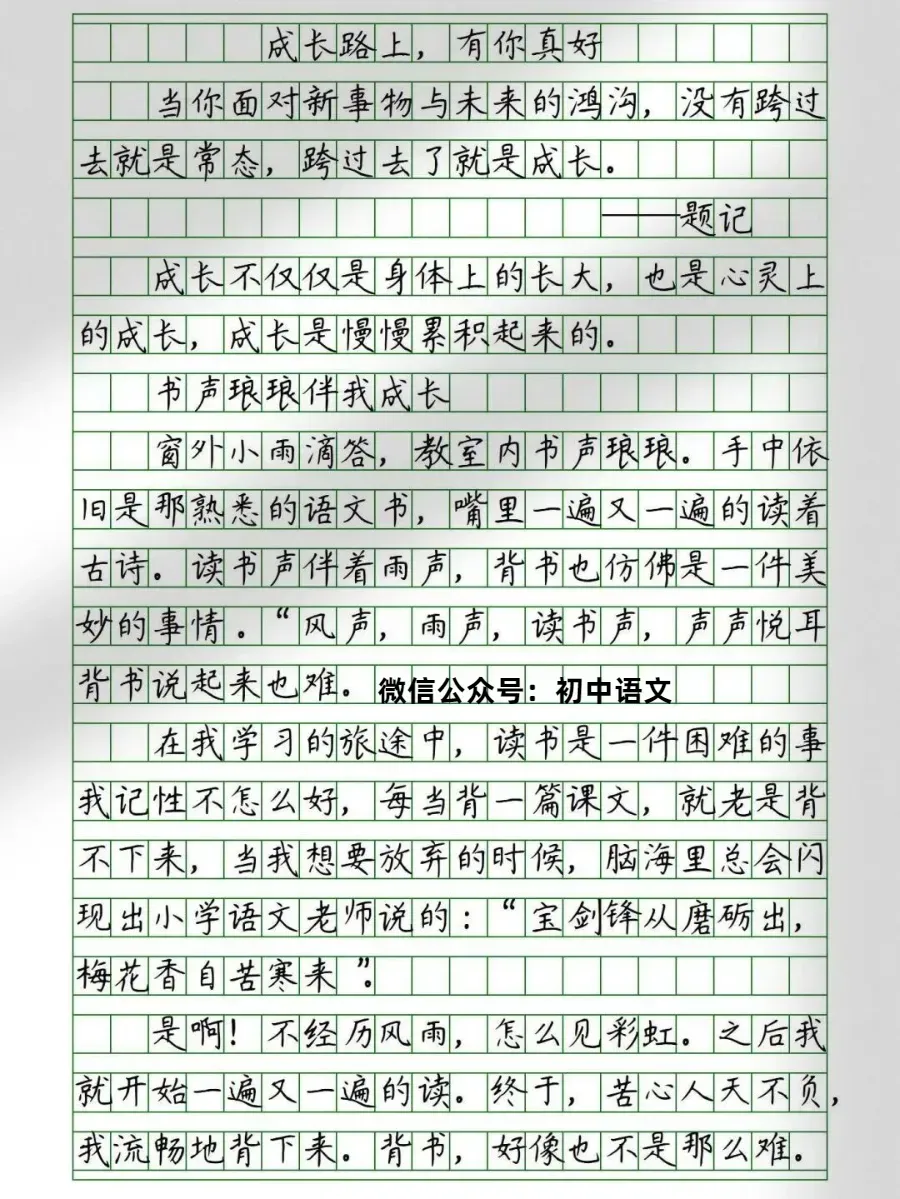 成长路上，有你真好
当你面对新事物与未来的鸿沟，没有跨过
去就是常态，跨过去了就是成长。
——题记
成长不仅仅是身体上的长大，也是心灵上
的成长，成长是慢慢累积起来的。
书声琅琅伴我成长
窗外小雨滴答，教室内书声琅琅。手中依
旧是那熟悉的语文书，嘴里一遍又一遍的读着
古诗。读书声伴着雨声，背书也仿佛是一件美
妙的事情。“风声，雨声，读书声，声声悦耳
背书说起来也难。
微信公众号：初中语文
在我学习的旅途中，读书是一件困难的事
我记性不怎么好，每当背一篇课文，就老是背
不下来，当我想要放弃的时候，脑海里总会闪
现出小学语文老师说的：“宝剑锋从磨砺出，
梅花香自苦寒来”。
是啊！不经历风雨，怎么见彩虹。之后我
就开始一遍又一遍的读。终于，苦心人天不负，
我流畅地背下来。背书，好像也不是那么难。